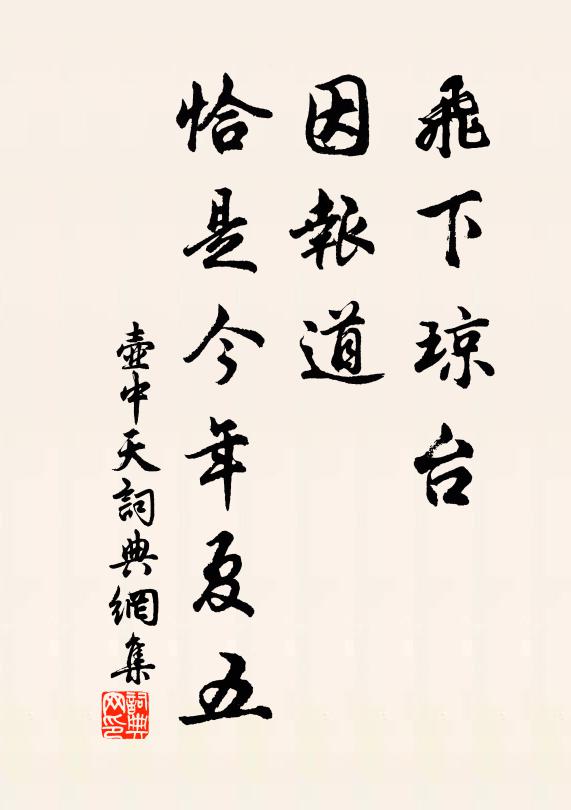 飛下琼台
因報道
恰是今年夏五
壺中天詞典網集
詞典网印